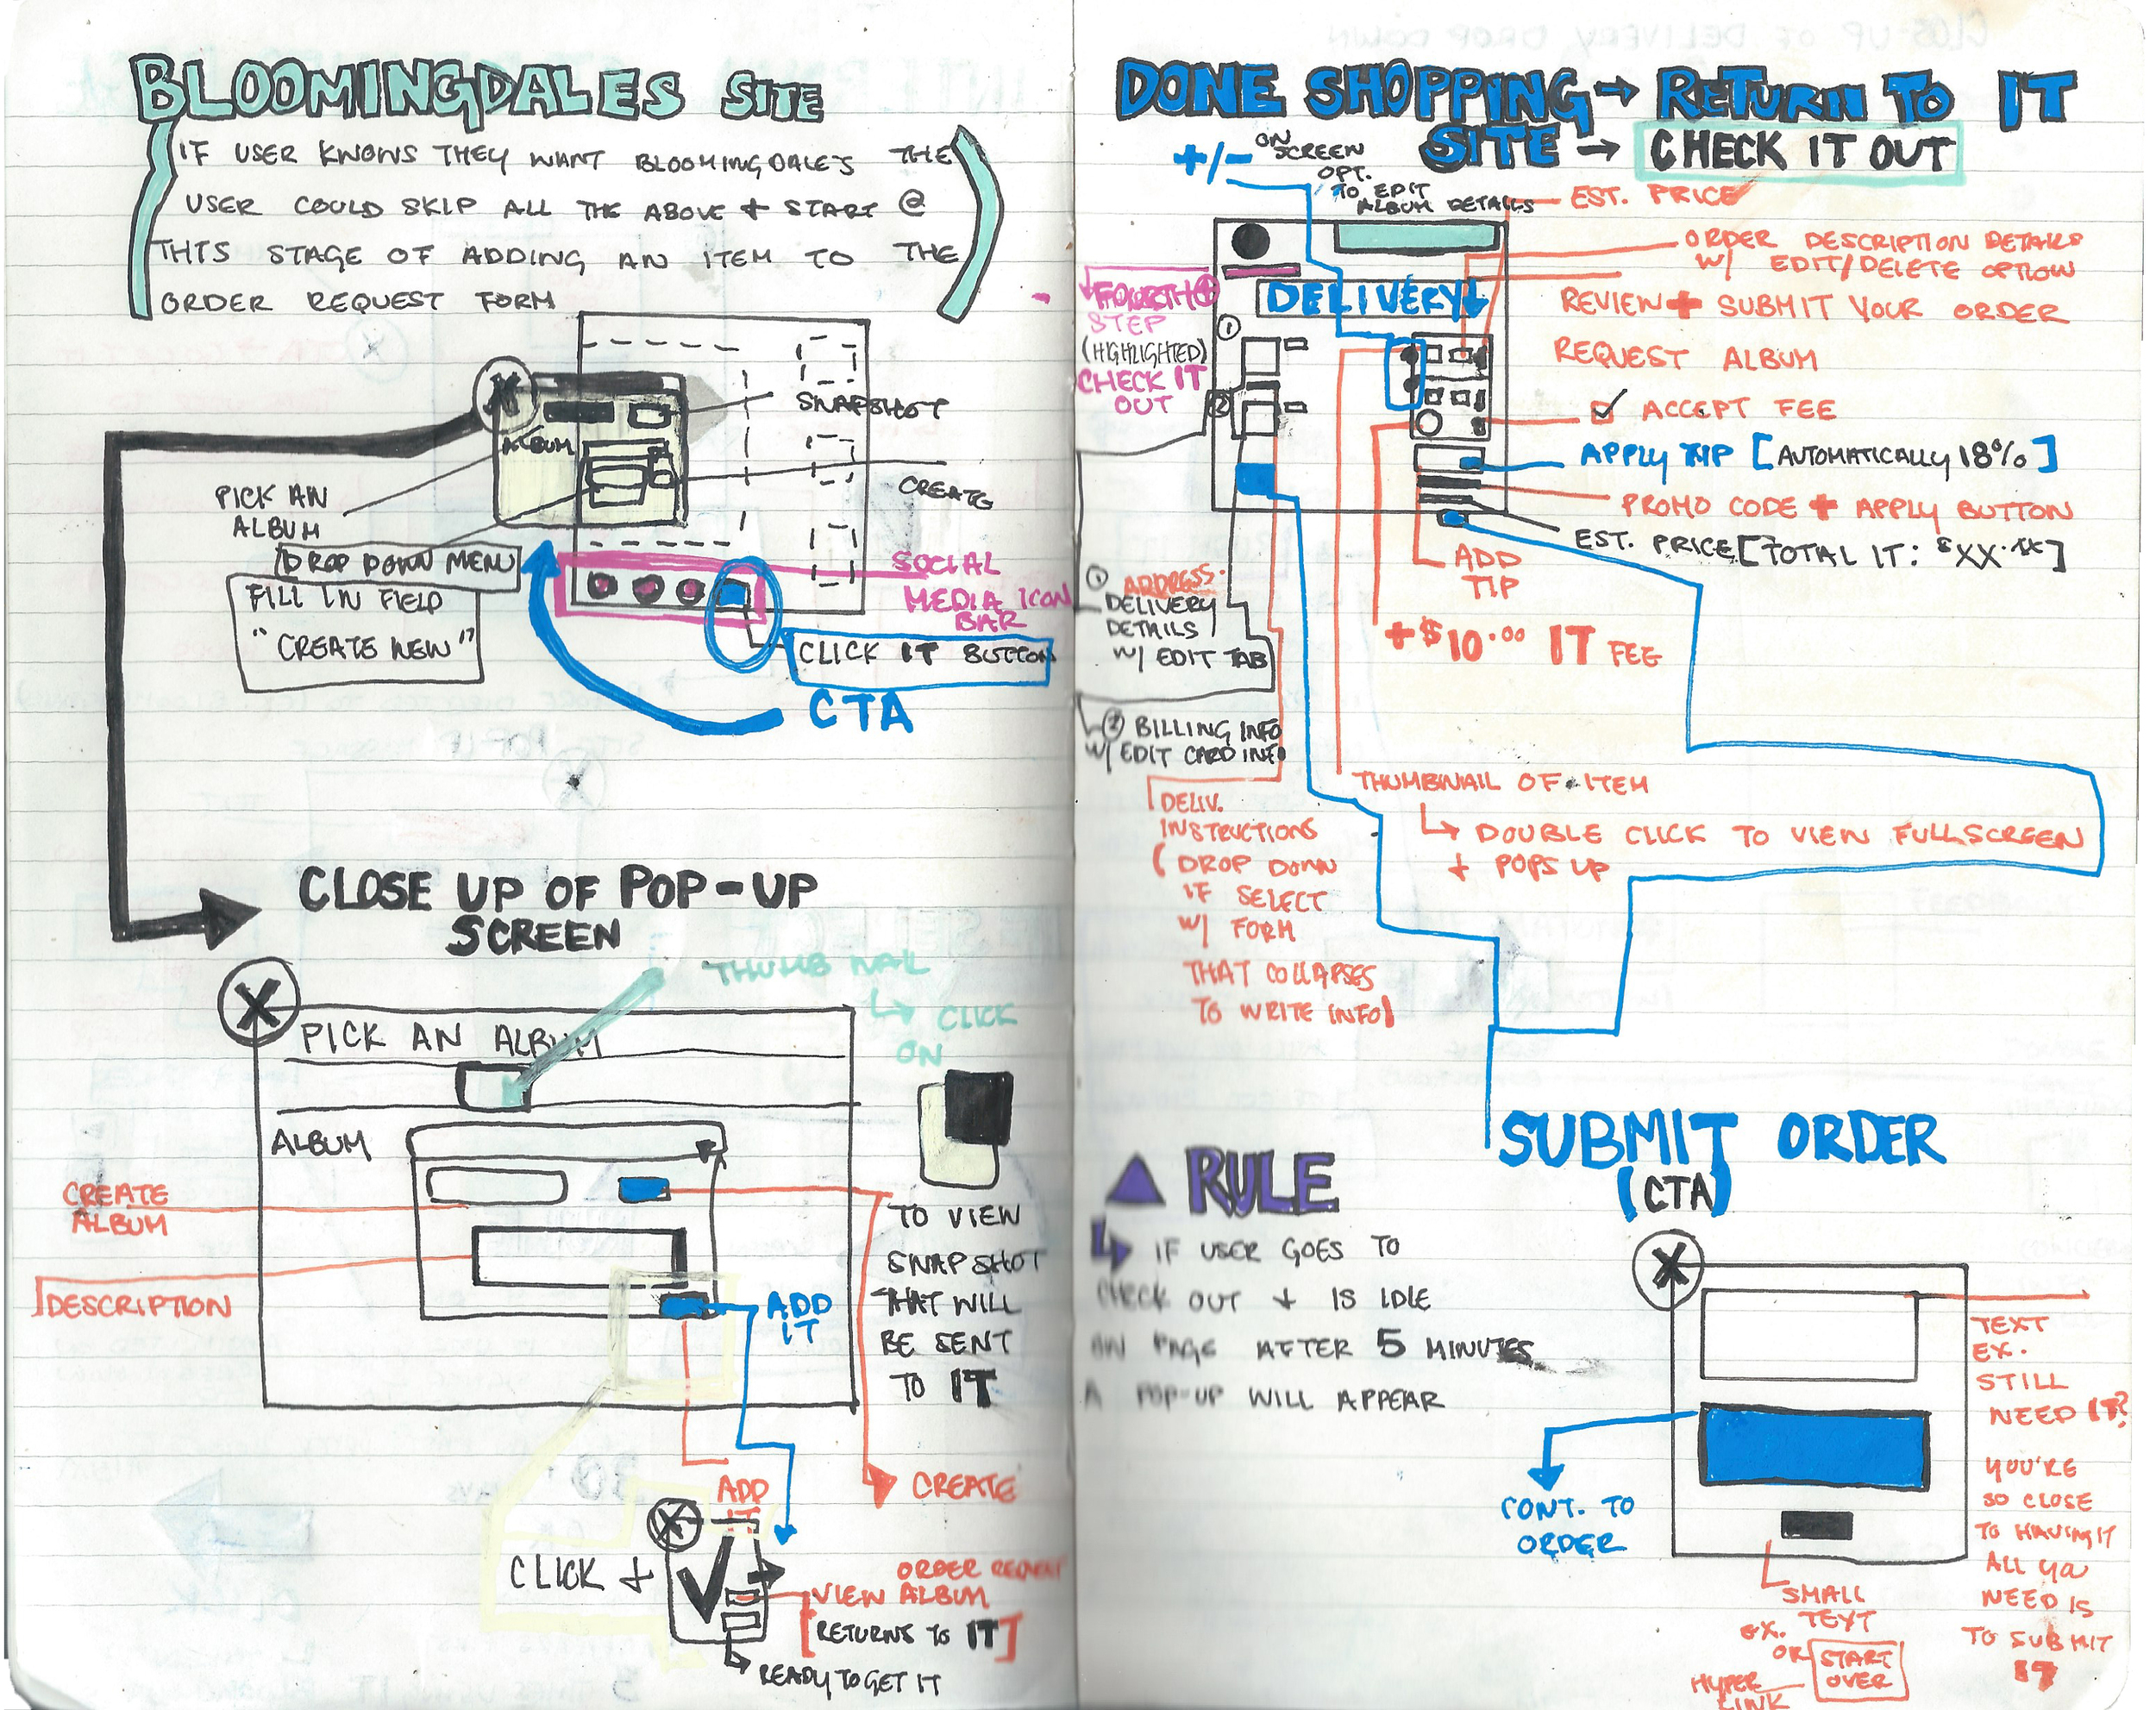 BLOOMINGDALES SITE
IF USER KNOWS THEY WANT BLOOMINGDALE'S THE
USER COULD SKIP ALL THE ABOVE + START @
THIS STAGE OF ADDING AN ITEM TO THE
ORDER REQUEST FORM
X
SNAPSHOT
ALBUM
PICK AN
ALBUM
CREATE
DROP DOWN MENU
FILL IN FIELD
"CREATE NEW"
SOCIAL
MEDIA ICON
BAR
CLICK IT BUTTON
CTA
CLOSE UP OF POP-UP
SCREEN
THUMB NAIL
CLICK
ON
X
PICK AN ALBUM
ALBUM
CREATE
ALBUM
DESCRIPTION
ADD
IT
TO VIEW
SNAPSHOT
THAT WILL
BE SENT
TO IT
CREATE
ADD
IT
X
CLICK +
ORDER REQUEST
VIEW ALBUM
[RETURNS TO IT]
READY TO GET IT
DONE SHOPPING → RETURN TO IT
SITE → CHECK IT OUT
+/-
ON
SCREEN
OPT.
TO EDIT
ALBUM DETAILS
EST. PRICE
ORDER DESCRIPTION DETAILS
W/ EDIT/DELETE OPTION
REVIEW + SUBMIT YOUR ORDER
REQUEST ALBUM
ACCEPT FEE
APPLY TIP [AUTOMATICALLY 18%]
PROMO CODE + APPLY BUTTON
EST. PRICE [TOTAL IT: $XX.XX]
ADD
TIP
+$10.00 IT FEE
DELIVERY
FOURTH 4
STEP
(HIGHLIGHTED)
CHECK IT
OUT
1
2
1 ADDRESS.
DELIVERY
DETAILS
W/ EDIT TAB
2 BILLING INFO
W/ EDIT CARD INFO
DELIV.
INSTRUCTIONS
(DROP DOWN
IF SELECT
W/ FORM
THAT COLLAPSES
TO WRITE INFO)
THUMBNAIL OF ITEM
DOUBLE CLICK TO VIEW FULLSCREEN
+ POPS UP
SUBMIT ORDER
(CTA)
RULE
IF USER GOES TO
CHECK OUT + IS IDLE
ON PAGE AFTER 5 MINUTES
A POP-UP WILL APPEAR
X
TEXT
EX.
STILL
NEED IT?
YOU'RE
SO CLOSE
TO HAVING IT
ALL YA
NEED IS
TO SUBMIT
IT
CONT. TO
ORDER
SMALL
TEXT
EX.
OR START
OVER
HYPER
LINK